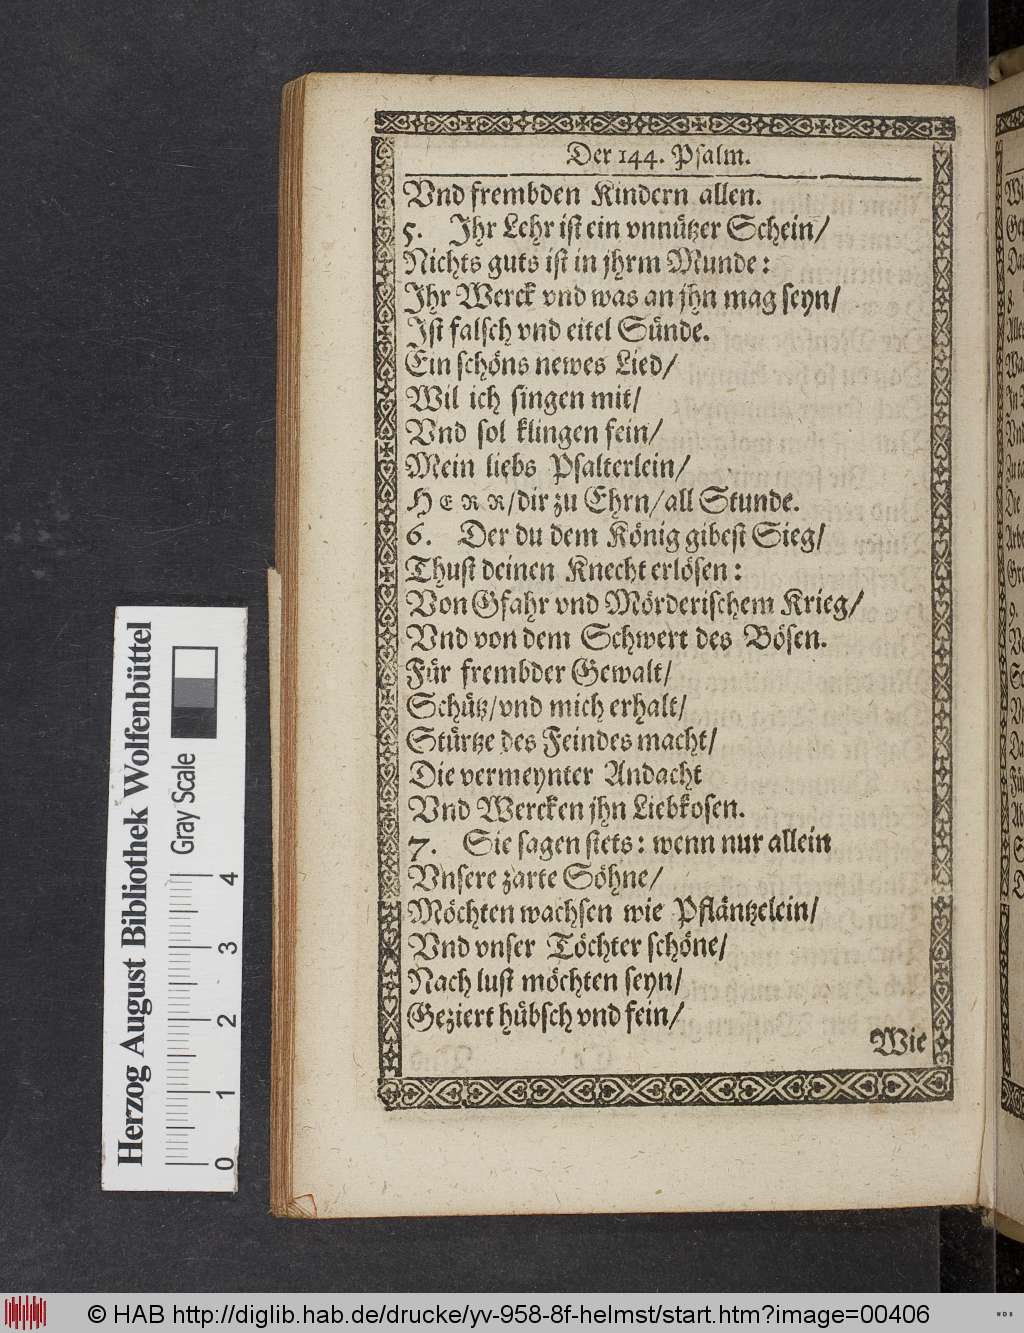 Der 144. Psalm.
Vnd frembden Kindern allen.
5. Jhr Lehr ist ein vnnützer Schein/
Nichts guts ist in jhrm Munde:
Jhr Werck vnd was an jhn mag seyn/
Jst falsch vnd eitel Sünde.
Ein schöns newes Lied/
Wil ich singen mit/
Vnd sol klingen fein/
Mein liebs Psalterlein/
HERR/dir zu Ehrn/all Stunde.
6. Der du dem König gibest Sieg/
Thust deinen Knecht erlösen:
Von Gfahr vnd Mörderischem Krieg/
Vnd von dem Schwert des Bösen.
Für frembder Gewalt/
Schütz/vnd mich erhalt/
Stürtze des Feindes macht/
Die vermeynter Andacht
Vnd Wercken jhn Liebkosen.
7. Sie sagen stets: wenn nur allein
Vnsere zarte Söhne/
Möchten wachsen wie Pfläntzelein/
Vnd vnser Töchter schöne/
Nach lust möchten seyn/
Geziert hübsch vnd fein/
Wie
Herzog August Bibliothek Wolfenbüttel
Gray Scale
0 1 2 3 4
© HAB http://diglib.hab.de/drucke/yv-958-8f-helmst/start.htm?image=00406